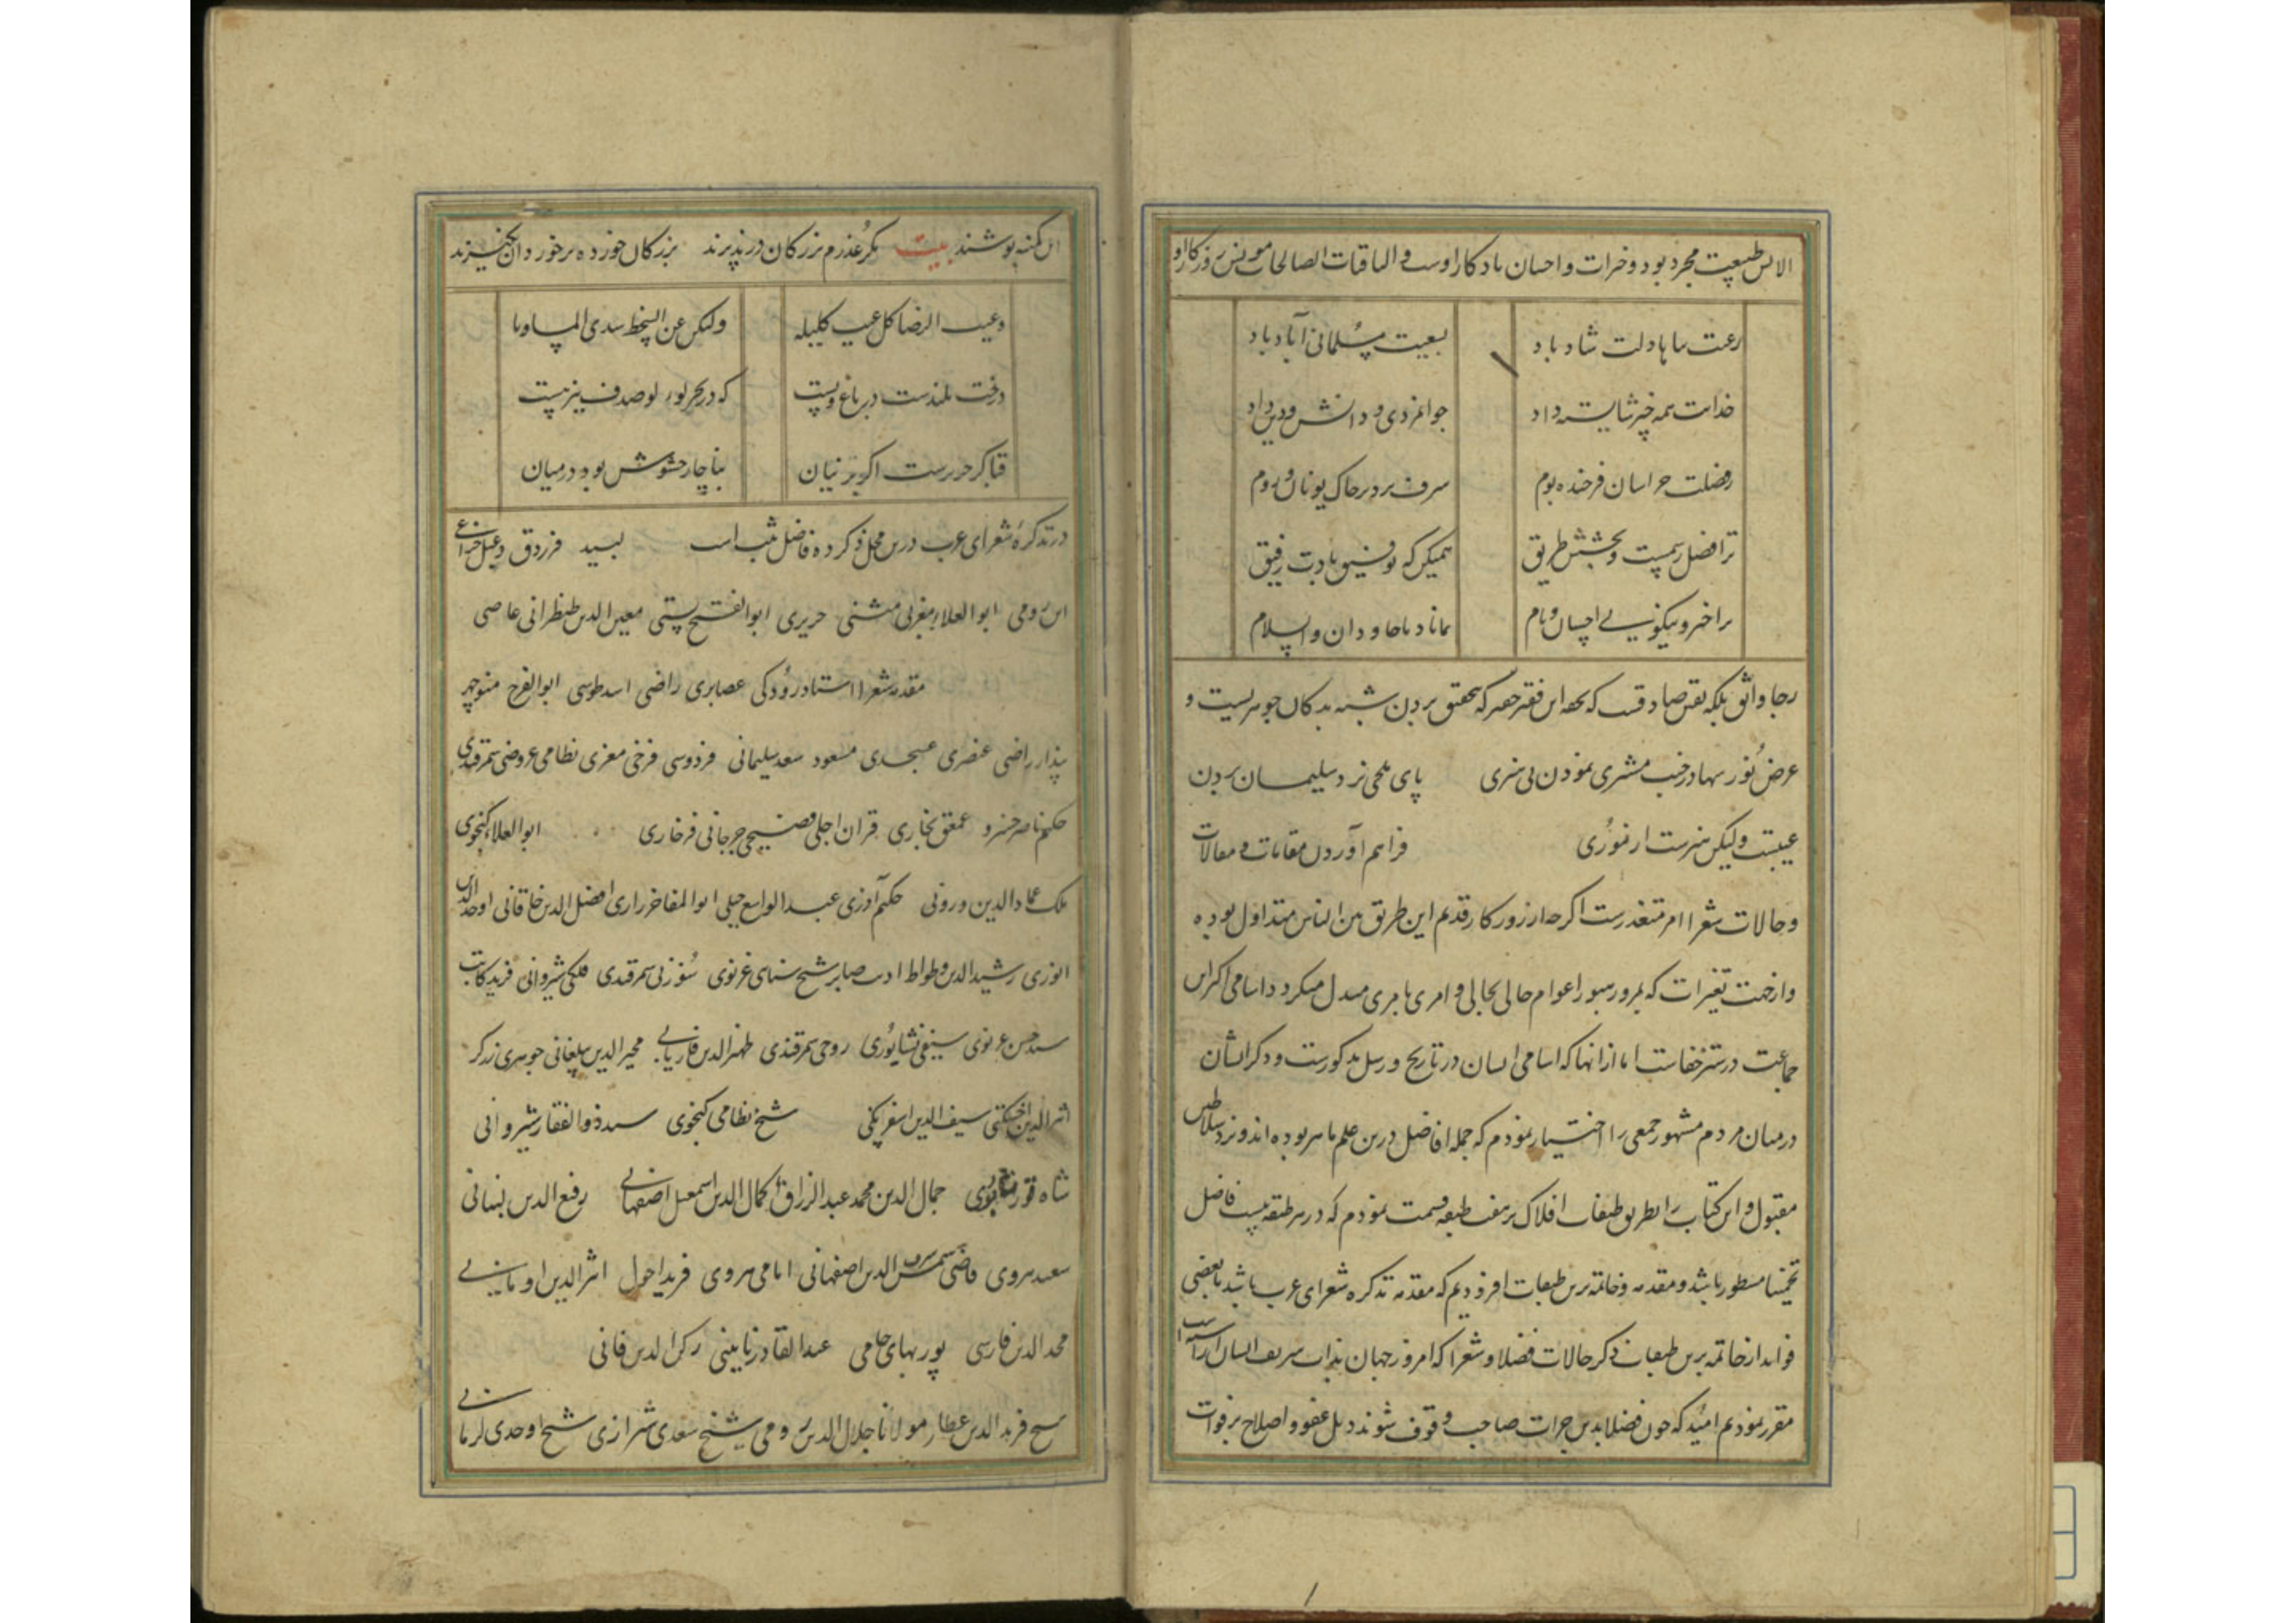 طبیعت مجرد بود و خیرات و احسان یادکار اوست و الباقیات الصالحات مونس روزکار او
رعیت شاها دلت شاد باد بسعیت مسلمانی آباد باد
خدات همه چیز شایسته داد جوانمردی و دانش و دین و داد
بفضلت خراسان فرخنده بوم شرف برد بر خاک یونان و روم
ترا فضل رسمست و بخشش طریق همیکن که توفیق بادت رفیق
چرا خبر و نیکویی احسان و نام بماناد با جاودان والسلام
رجا واثق بلکه یقین صادقست که تحفه این فقیر حقیر که بتحقیق بردن شبه بدکان جوهریست و
عرض نور سها در جنب مشتری نمودن بی هنری پای ملخی نزد سلیمان بردن
عیبست ولیکن هنرست از موری فراهم آوردن مقامات و مقالات
و حالات شعرا امر متعذرست اکرچه از روزکار قدیم این طریق بین الناس متداول بوده
و از جهت تغیرات که بمرور شهور و اعوام حالی بحالی و امری بامری مبدل میکردد اسامی اکثر این
جماعت در ستر خفاست اما از انها که اسامی ایشان در تاریخ و رسل مذکورست و ذکر ایشان
در میان مردم مشهور جمعی را اختیار نمودم که جمله افاضل درین علم ماهر بوده اند و نزد سلاطین
مقبول و این کتاب را بطریق طبقات افلاک بر هفت طبقه قسمت نمودم که در هر طبقه بیست فاضل
تخمینا مسطور باشد و مقدمه و خاتمه برین طبقات افزودیم که مقدمه تذکره شعرای عرب باشد با بعضی
فواید از خاتمه برین طبقات ذکر حالات فضلا و شعرا که امروز جهان بذات شریف ایشان آراسته است
مقرر نمودیم امید که چون فضلا بدین جرات صاحب وقوف شوند ذیل عفو و اصلاح بر فوات
این کمینه پوشند بیت مکر عذرم بزرکان در پذیرند بزرکان خورده بر خوردان نکیرند
وعین الرضا عن کل عیب کلیله ولکن عین السخط تبدی المساویا
درخت بلندست در باغ و پست که در بحر لولو صدف نیز هست
قبا کر حریرست اکر پرنیان بناچار حشوش بود در میان
در تذکرهٔ شعرای عرب درین محل ذکر ده فاضل ثبت است لبید فرزدق دعبل خزاعی
ابن رومی ابو العلاء مغربی متنبی حریری ابو الفتح بستی معین الدین طنطرانی عاصی
مقدمه شعرا استاد رودکی عضایری راضی اسد طوسی ابو الفرج منوچهر
پندار راضی عنصری عسجدی مسعود سعد سلیمانی فردوسی فرخی معزی نظامی عروضی سمرقندی
حکیم ناصر خسرو عمعق بخاری قران اجلی فصیحی جرجانی فرخاری ابو العلاء کنجوی
ملک عماد الدین وزونی حکیم آوزی عبد الواسع جبلی ابو المفاخر رازی افضل الدین خاقانی اوحد الدین
انوری رشید الدین وطواط ادیب صابر شیخ سنای غزنوی سوزنی سمرقندی فلکی شیروانی فرید کاتب
سید حسن غزنوی سیفی نشابوری روحی سمرقندی ظهیر الدین فاریابی مجیر الدین بیلقانی جوهری زرکر
اثیر الدین اخسیکتی سیف الدین اسفرنکی شیخ نظامی کنجوی سید ذو الفقار شیروانی
شاه فور نشابوری جمال الدین محمد عبد الرزاق کمال الدین اسمعیل اصفهانی رفیع الدین لنبانی
سعید هروی قاضی شمس الدین اصفهانی امامی هروی فرید احول اثیر الدین اومانی
مجد الدین فارسی پوربهای جامی عبد القادر نایینی رکن الدین قانی
شیخ فرید الدین عطار مولانا جلال الدین رومی شیخ سعدی شیرازی شیخ اوحدی کرمانی